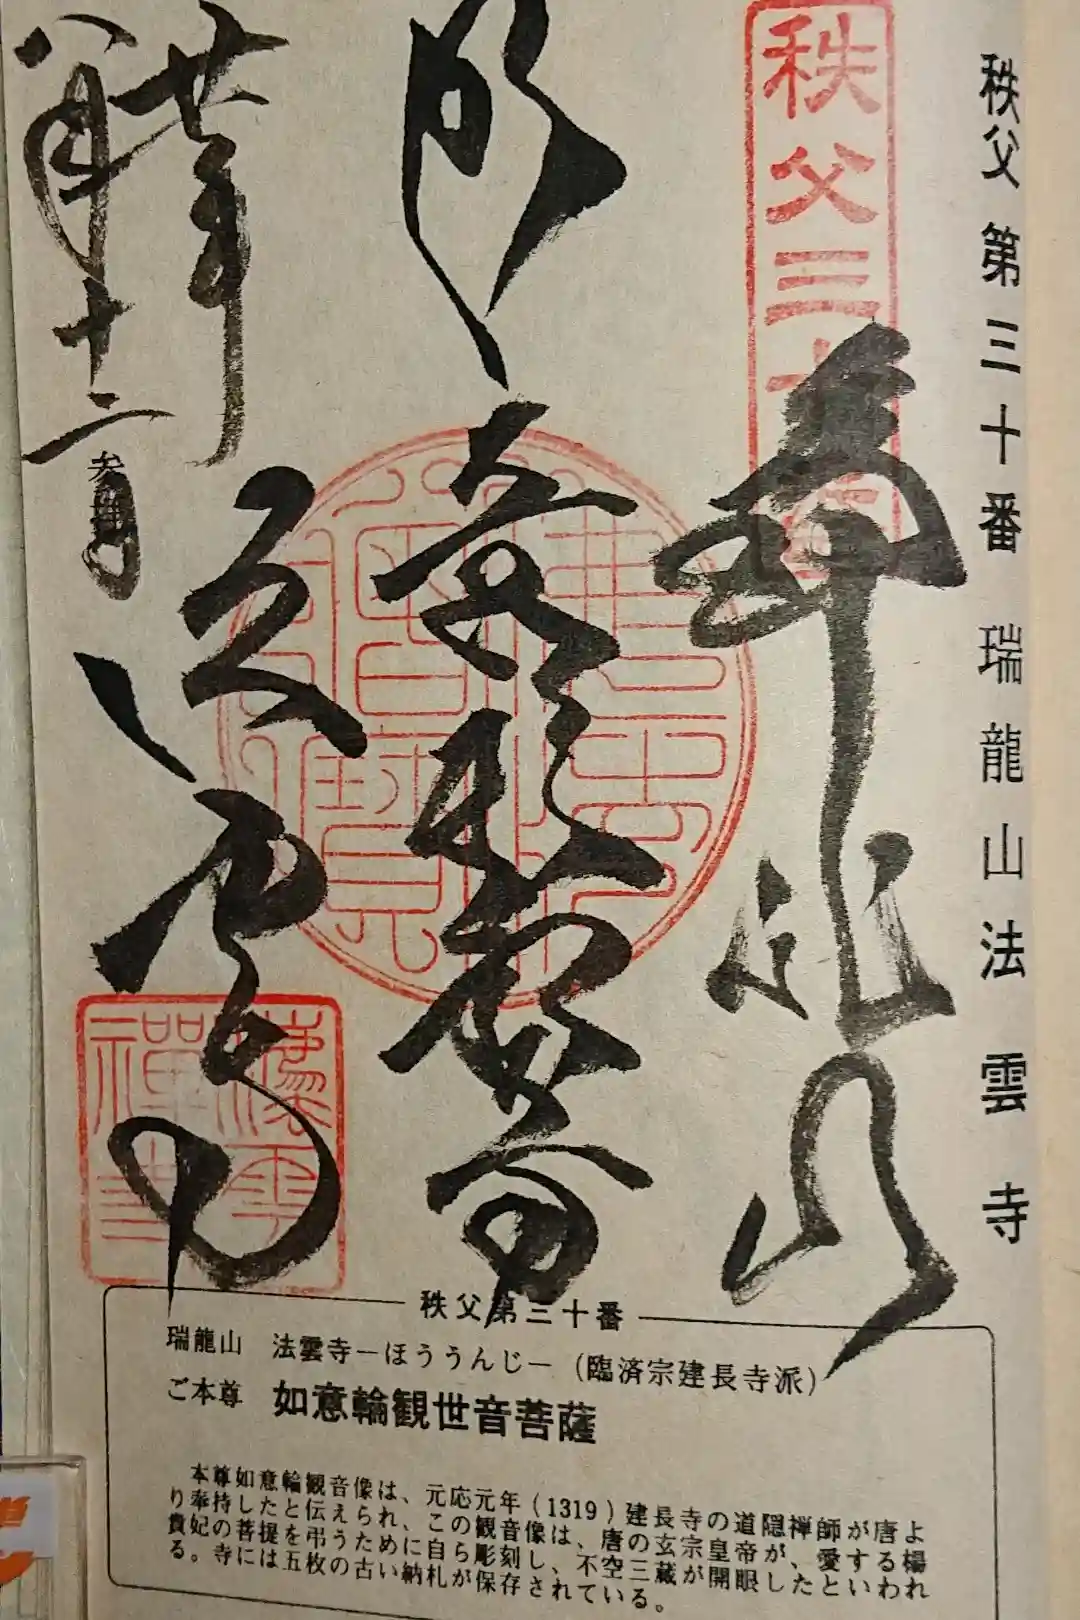 秩父第三十番 瑞龍山法雲寺
秩父三十
瑞龍山
如意輪観世音
法雲寺
十二月
参拝
秩父第三十番
瑞龍山 法雲寺－ほううんじ－(臨済宗建長寺派)
ご本尊 如意輪観世音菩薩
本尊如意輪観音像は、元応元年(1319)建長寺の道隠禅師が唐よ
り奉持したと伝えられ、この観音像は、唐の玄宗皇帝が、愛する楊
貴妃の菩提を弔うために自ら彫刻し、不空三蔵が開眼したといわれ
る。寺には五枚の古い納札が保存されている。